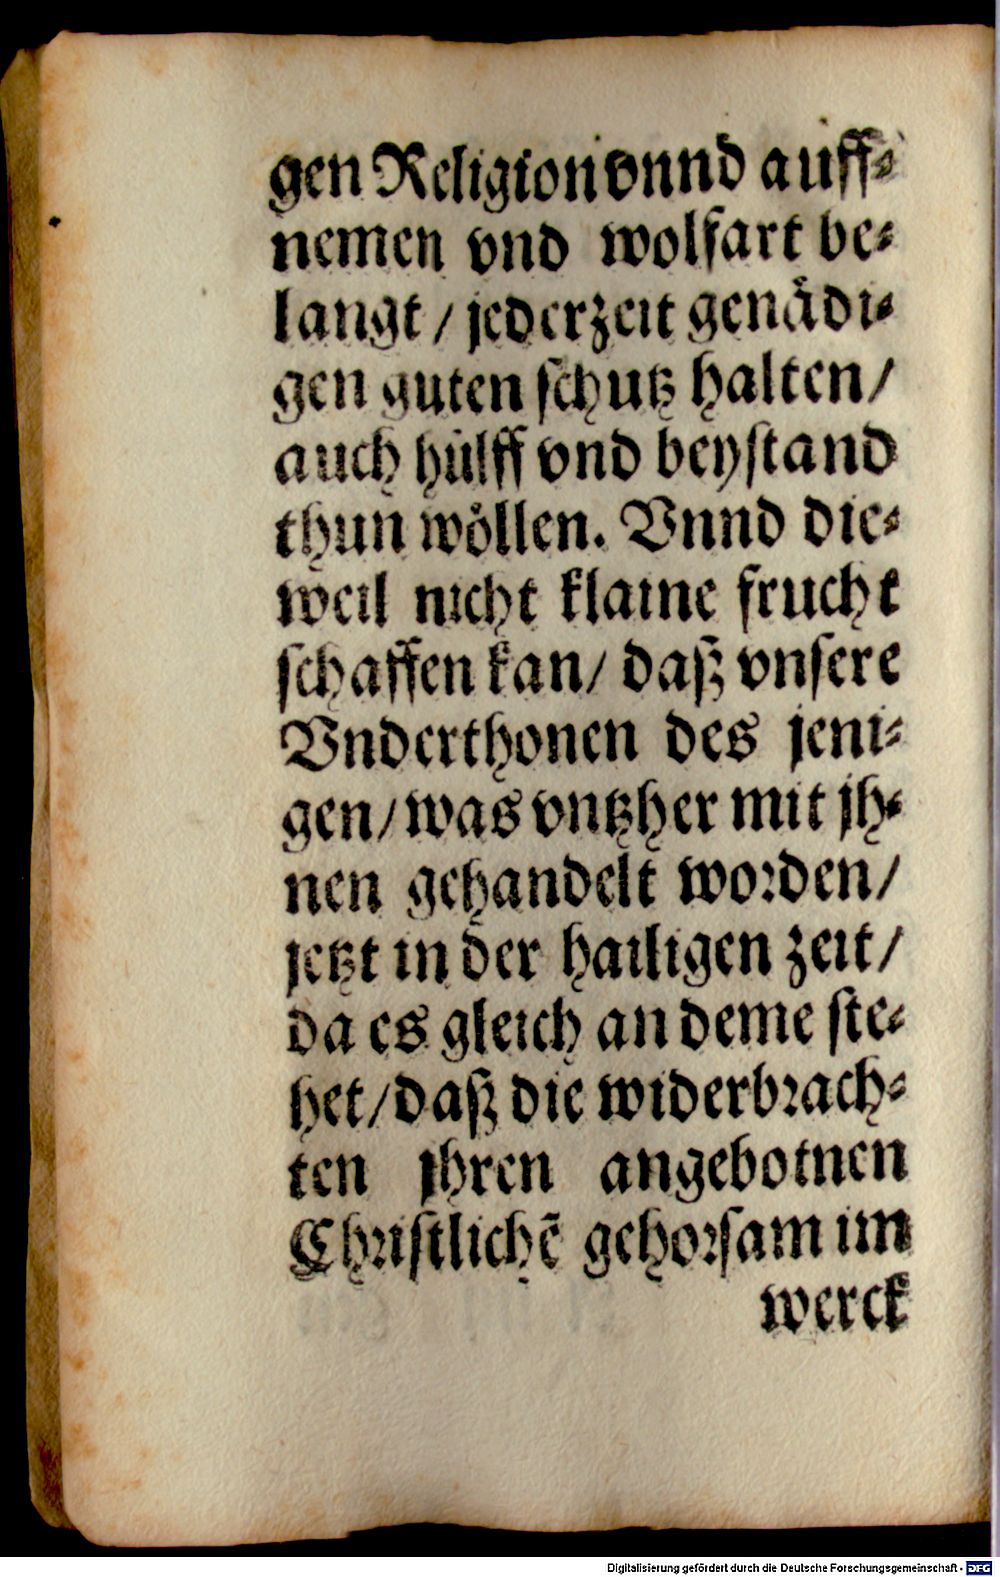 gen Religion vnnd auff⸗
nemen vnd wolfart be⸗
langt / jederzeit genådi⸗
gen guten schutz halten/
auch hůlff vnd beystand
thun wöllen. Vnnd die⸗
weil nicht klaine frucht
schaffen kan/ daß vnsere
Vnderthonen des jeni⸗
gen/ was vntzher mit jh⸗
nen gehandelt worden/
jetzt in der hailigen zeit/
da es gleich an deme ste⸗
het/ daß die widerbrach⸗
ten jhren angebotnen
Christlichē gehorsam im
werck
Digitalisierung gefördert durch die Deutsche Forschungsgemeinschaft - DFG